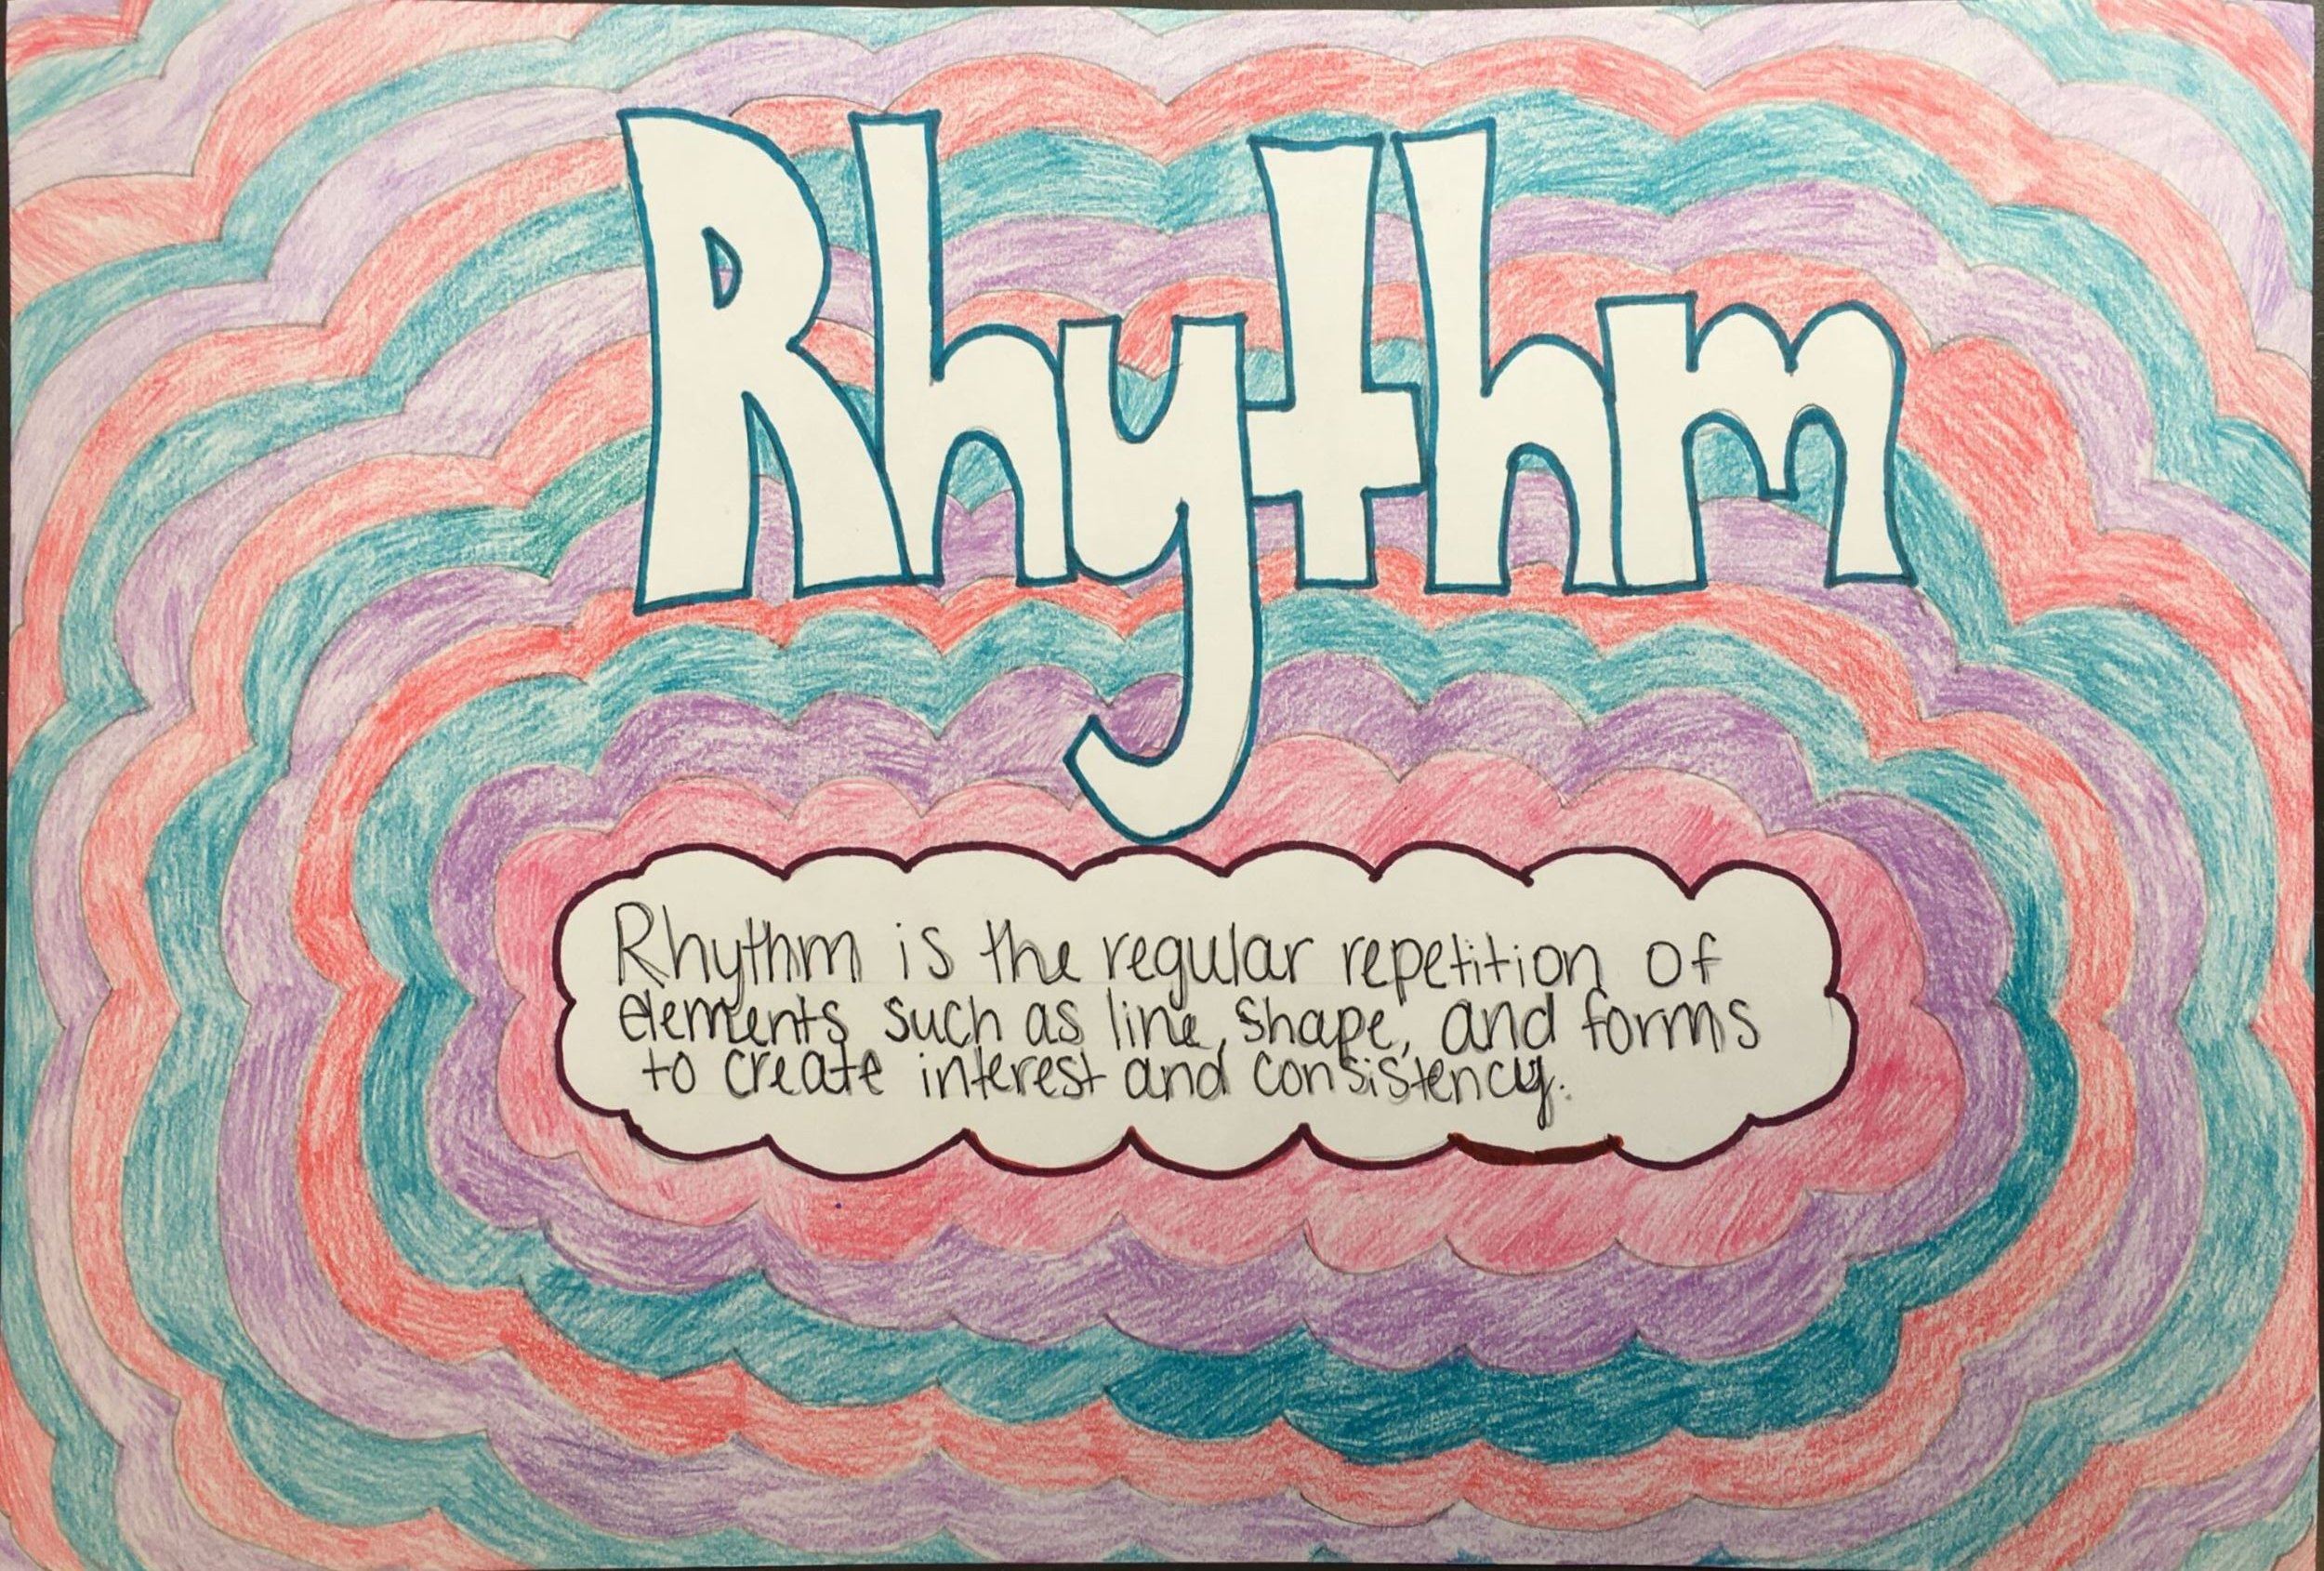 Rhythm
Rhythm is the regular repetition of
elements such as line, shape, and forms
to create interest and consistency.